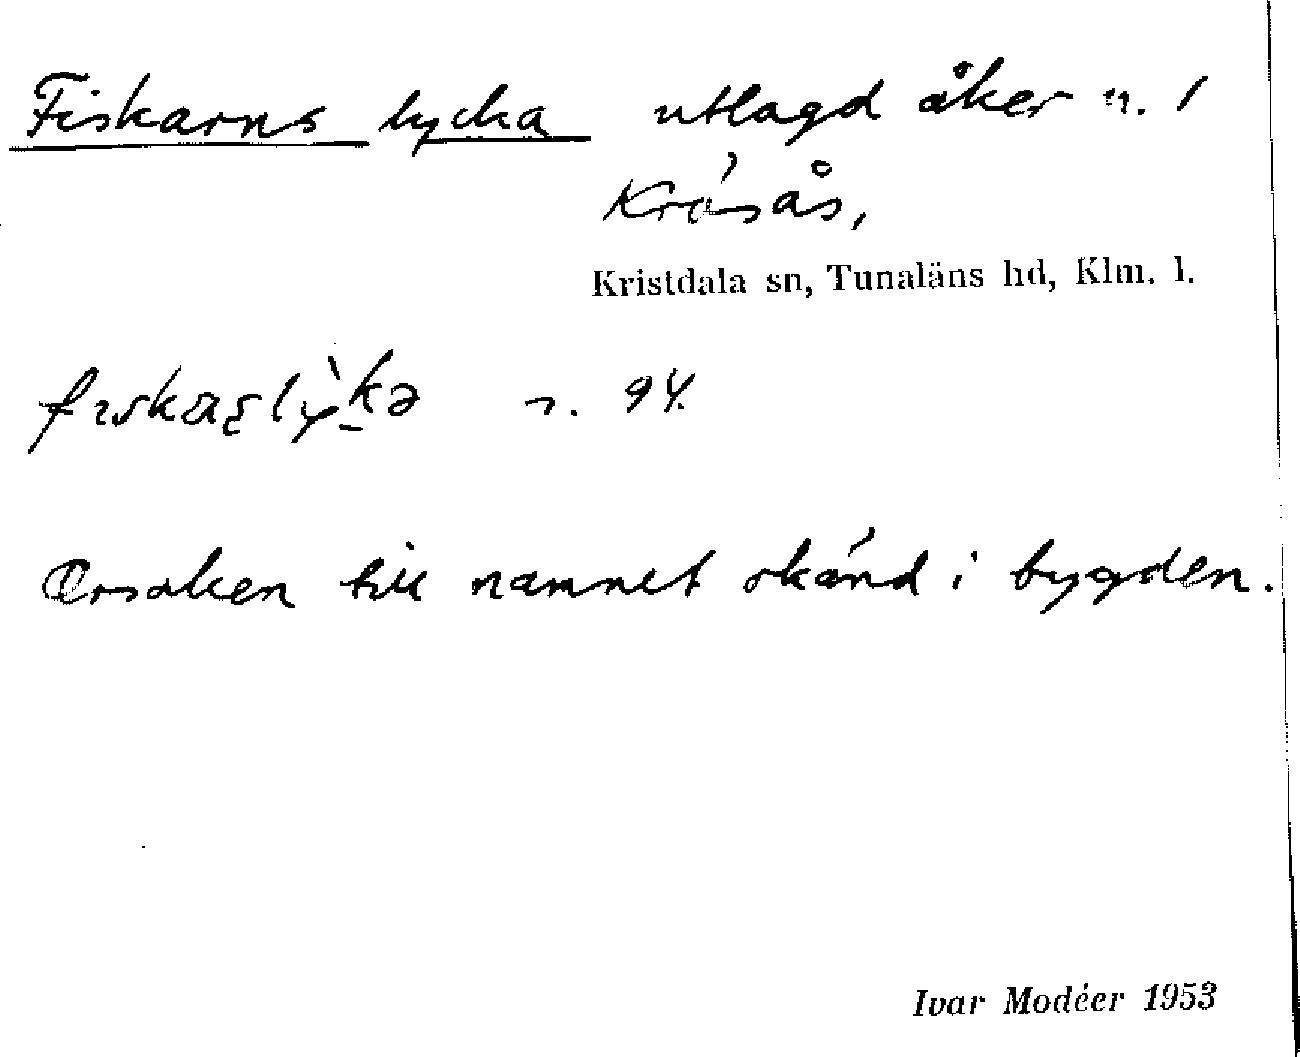 Fiskarns lycka utlagd åker n. 1
Krǻsås,
Kristdala sn, Tunaläns hd, Klm. l.
n. 94.
Orsaken till namnet okänd i bygden.
Ivar Modéer 1953